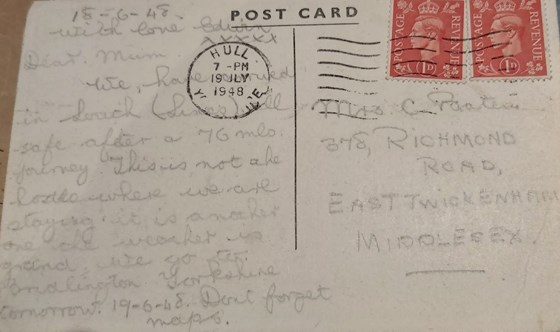 18-6-48.
POST CARD
With love
xxxxx
Dear. Mum
We, have
in
safe after a 76 mls.
journey. This is not the
house where we are
staying it, is another
one the weather is
grand. We go to.
Bridlington Yorkshire
tomorrow. 19-6-48. Dont forget
maps.
HULL
7 - PM
19 JLY
1948
POSTAGE
REVENUE
1D
POSTAGE
REVENUE
1D
Mrs C
378, RICHMOND
ROAD,
EAST TWICKENHAM
MIDDLESEX.